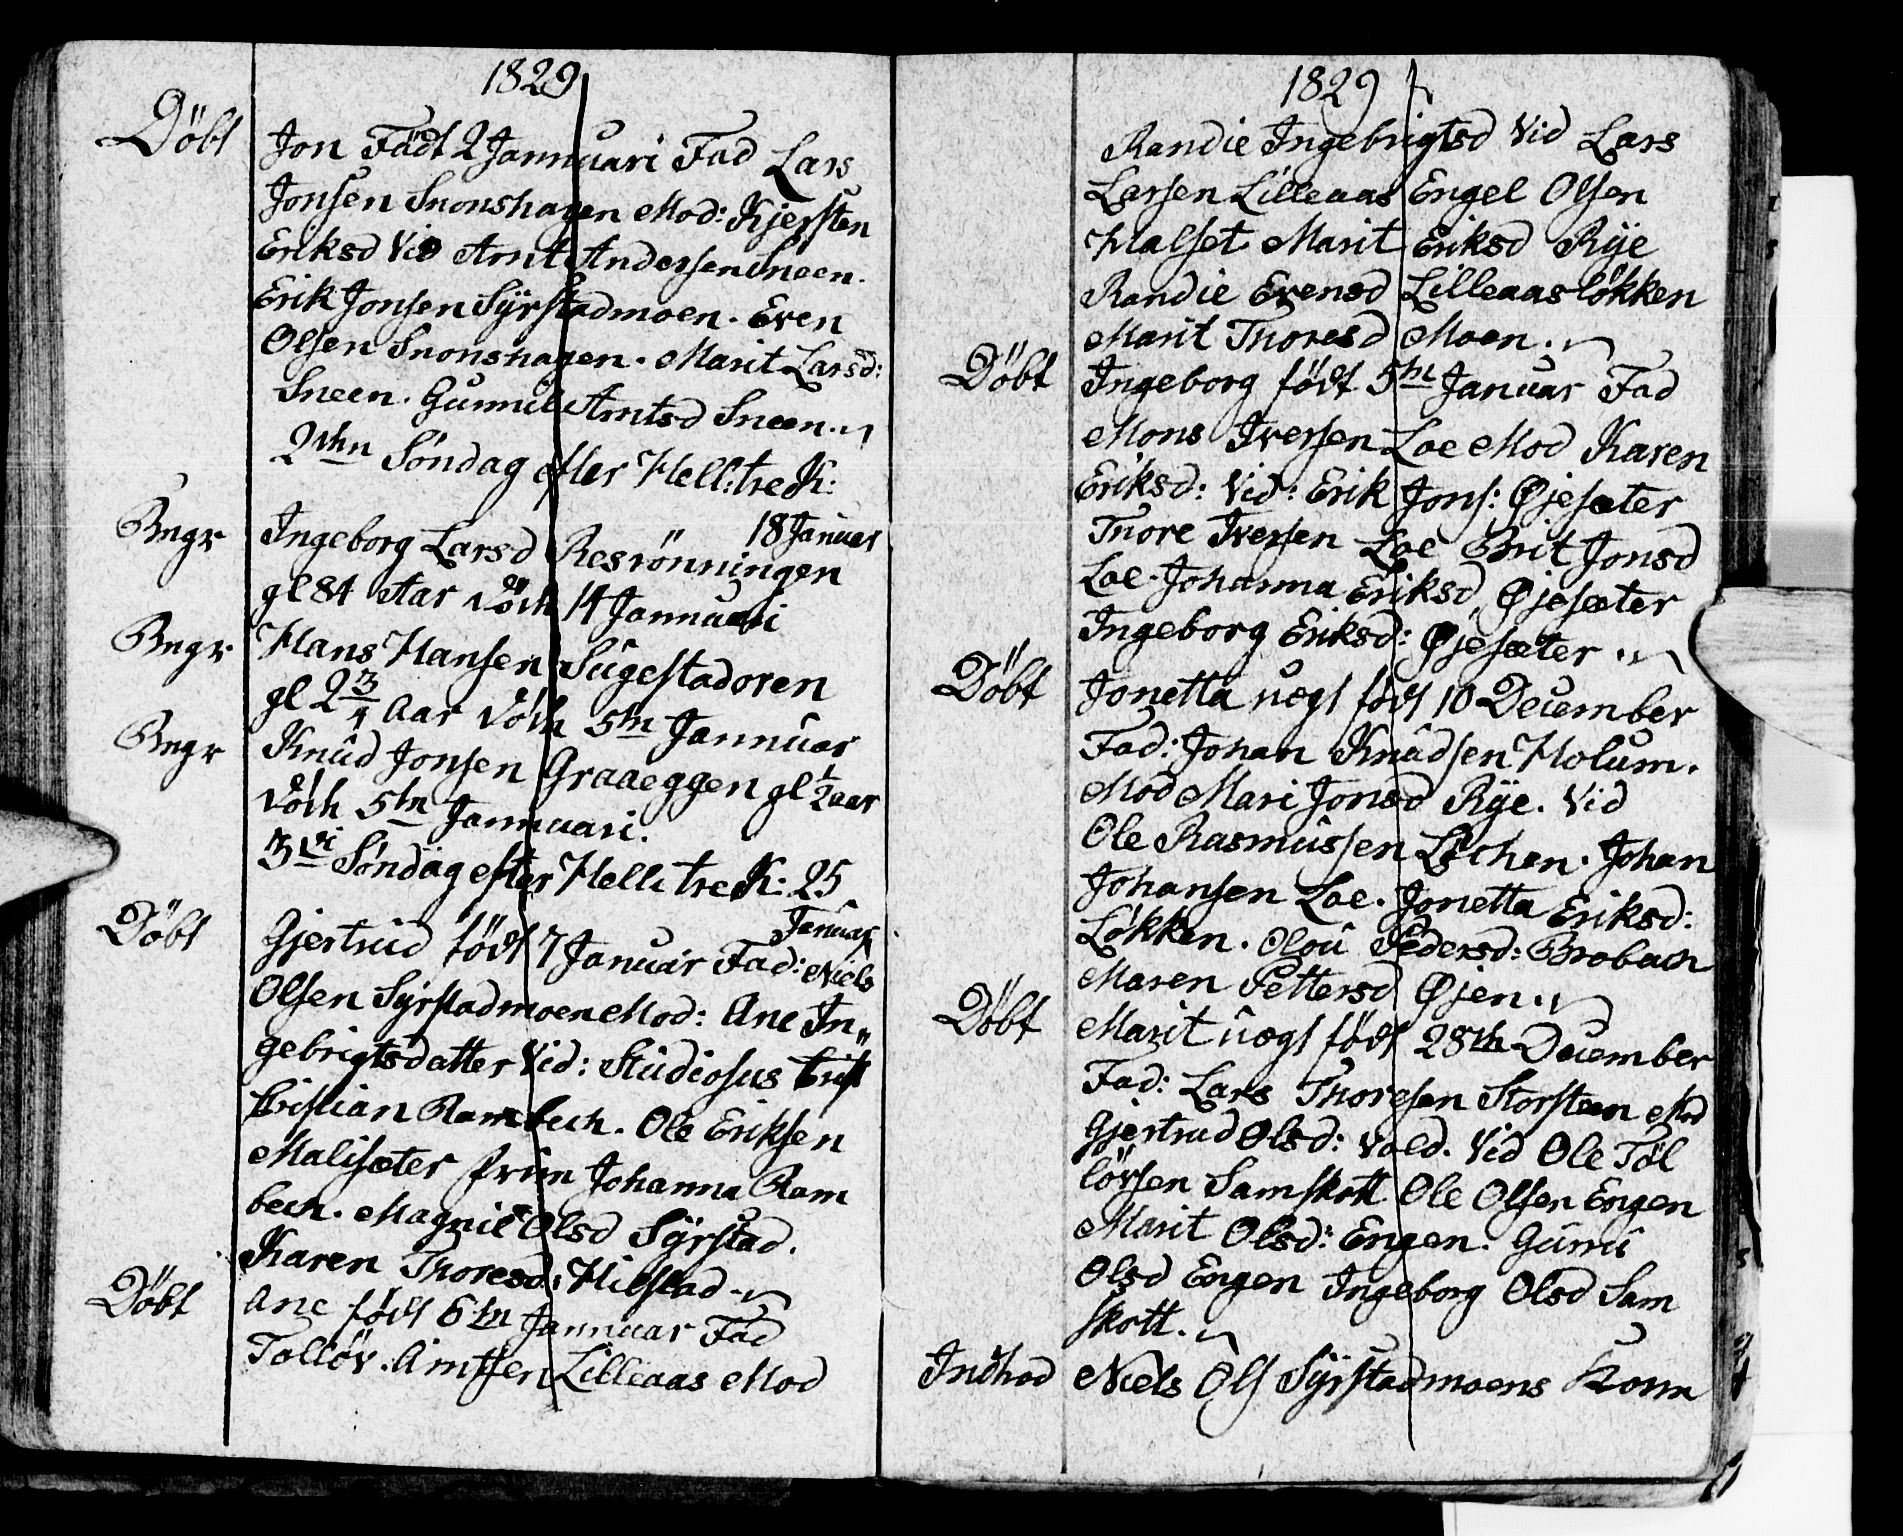 1829
Döbt
Jon Født 2 Jannuari Fad Lars
Jonsen Snonshagen Mod: Kjersten
Eriksd Vid Arnt Andersen Sneen.
Erik Jonsen Syrstadmoen. Even
Olsen Snonshagen. Marit Larsd:
Sneen. Gunnil Arntsd Sneen.
2den Söndag efter Hell: tre K:
18 Januar
Begr Ingeborg Larsd Resrönningen
gl 84 Aar döde 14 Jannuari
Begr Hans Hansen Sugestadoren
gl 2 3/4 Aar döde 5te Jannuar
Begr Knud Jonsen Graaeggen gl 1/2 aar
döde 5te Jannuari.
3die Söndag efter Helli tre K: 25
Januar
Döbt Gjertrud födt 7 Januar Fad: Niels
Olsen Syrstadmoen Mod: Ane In„
gebrigtsdatter Vid: Studiosus
Kristian Rambech. Ole Eriksen
Malisæter frün Johanna Ram
bech. Magnil Olsd Syrstad.
Karen Thoresd: Hilstad
Döbt Ane født 6te Jannuar Fad
Tollöv. Arntsen Lilleaas Mod
1829
Randie Ingebrigtsd Vid Lars
Larsen Lilleaas Engel Olsen
Halset Marit Eriksd Rye
Randie Evensd Lilleaaslökken
Marit Thoresd Moen.
Döbt Ingeborg födt 5te Januar Fad
Mons Iversen Loe Mod Karen
Eriksd: Vid: Erik Jons: Øjesæter
Thore Iversen Loe Brit Jonsd
Loe. Johanna Eriksd Øjesæter
Ingeborg Eriksd: Øjesæter.
Döbt Jonetta uægt födt 10 December
Fad: Johan Knudsen Holum.
Mod Mari Jonsd Rye. Vid
Ole Rasmussen Lochen. Johan
Johansen Loe. Jonetta Eriksd:
Lökken. Olou Pedersd: Brobach
Maren Pettersd Øjen.
Döbt Marit uægt födt 28de December
Fad: Lars Thoresen Storsteen Mod
Gjertrud Olsd: Vold. Vid Ole Töl
lövsen Samskott Ole Olsen Engen
Marit Olsd: Engen. Guru
Olsd Engen Ingeborg Olsd Sam
skott.
Indhod Niels Ols Syrstadmoens Kone